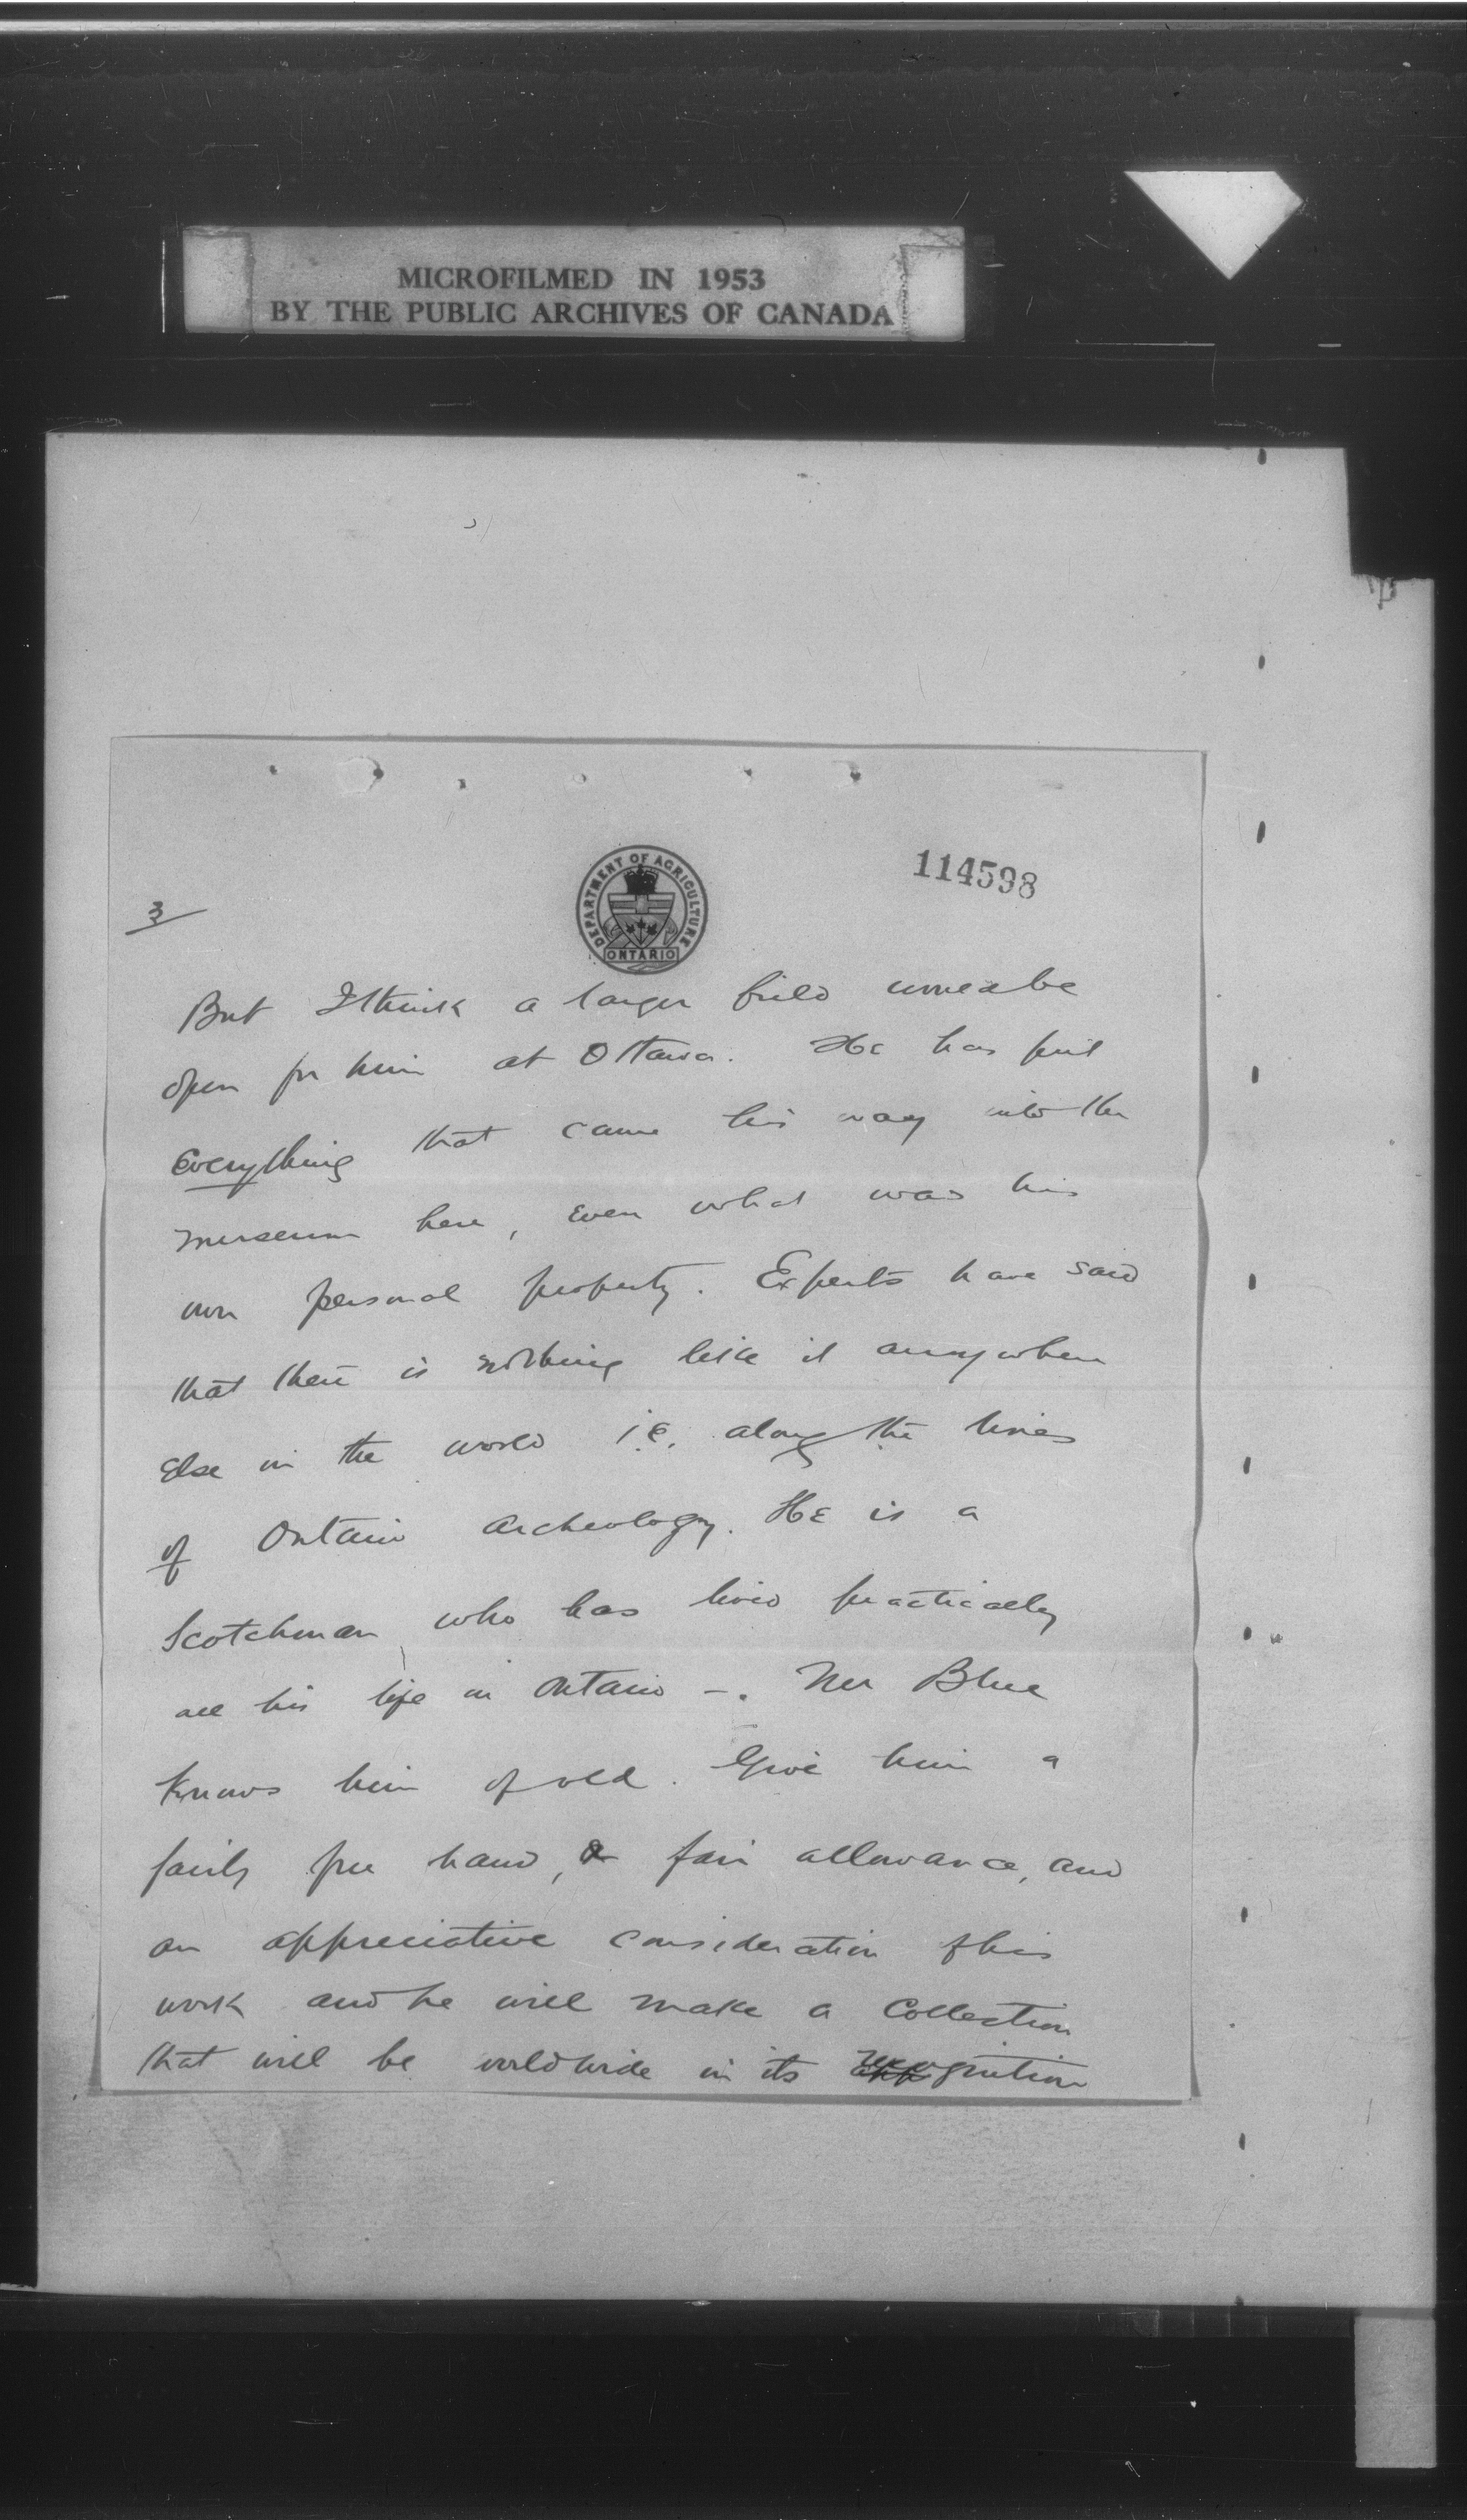 MICROFILMED IN 1953
BY THE PUBLIC ARCHIVES OF CANADA
114598
3
DEPARTMENT OF AGRICULTURE
ONTARIO
But I think a larger field would be
open for him at Ottawa. He has put
everything that came his way into the
museum here, even what was his
own personal property. Experts have said
that there is nothing like it anywhere
else in the world i.e. along the lines
of Ontario Archeology. He is a
Scotchman, who has lived practically
all his life in Ontario -. Mr Blue
knows him of old. Give him a
fairly free hand, a fair allowance, and
an appreciative consideration of his
work and he will make a collection
that will be worldwide in its recognition